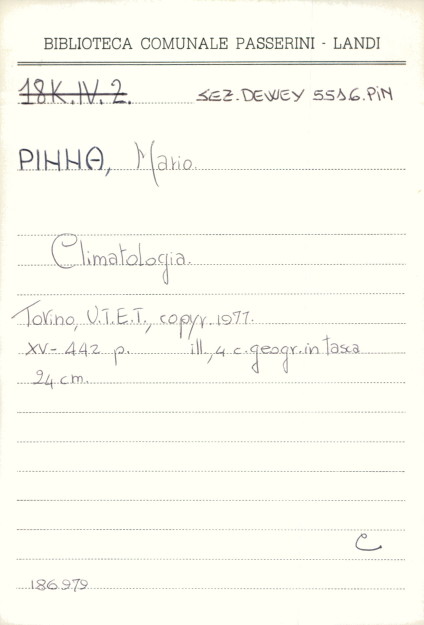 BIBLIOTECA COMUNALE PASSERINI - LANDI
18K.IV.2. SEZ.DEWEY 5516.PIN
PINNA, Mario.
Climatologia.
Torino, U.T.E.T., copyr.1977.
XV- 442 p. ill., 4 c.geogr.in tasca
24 cm.
C
186979